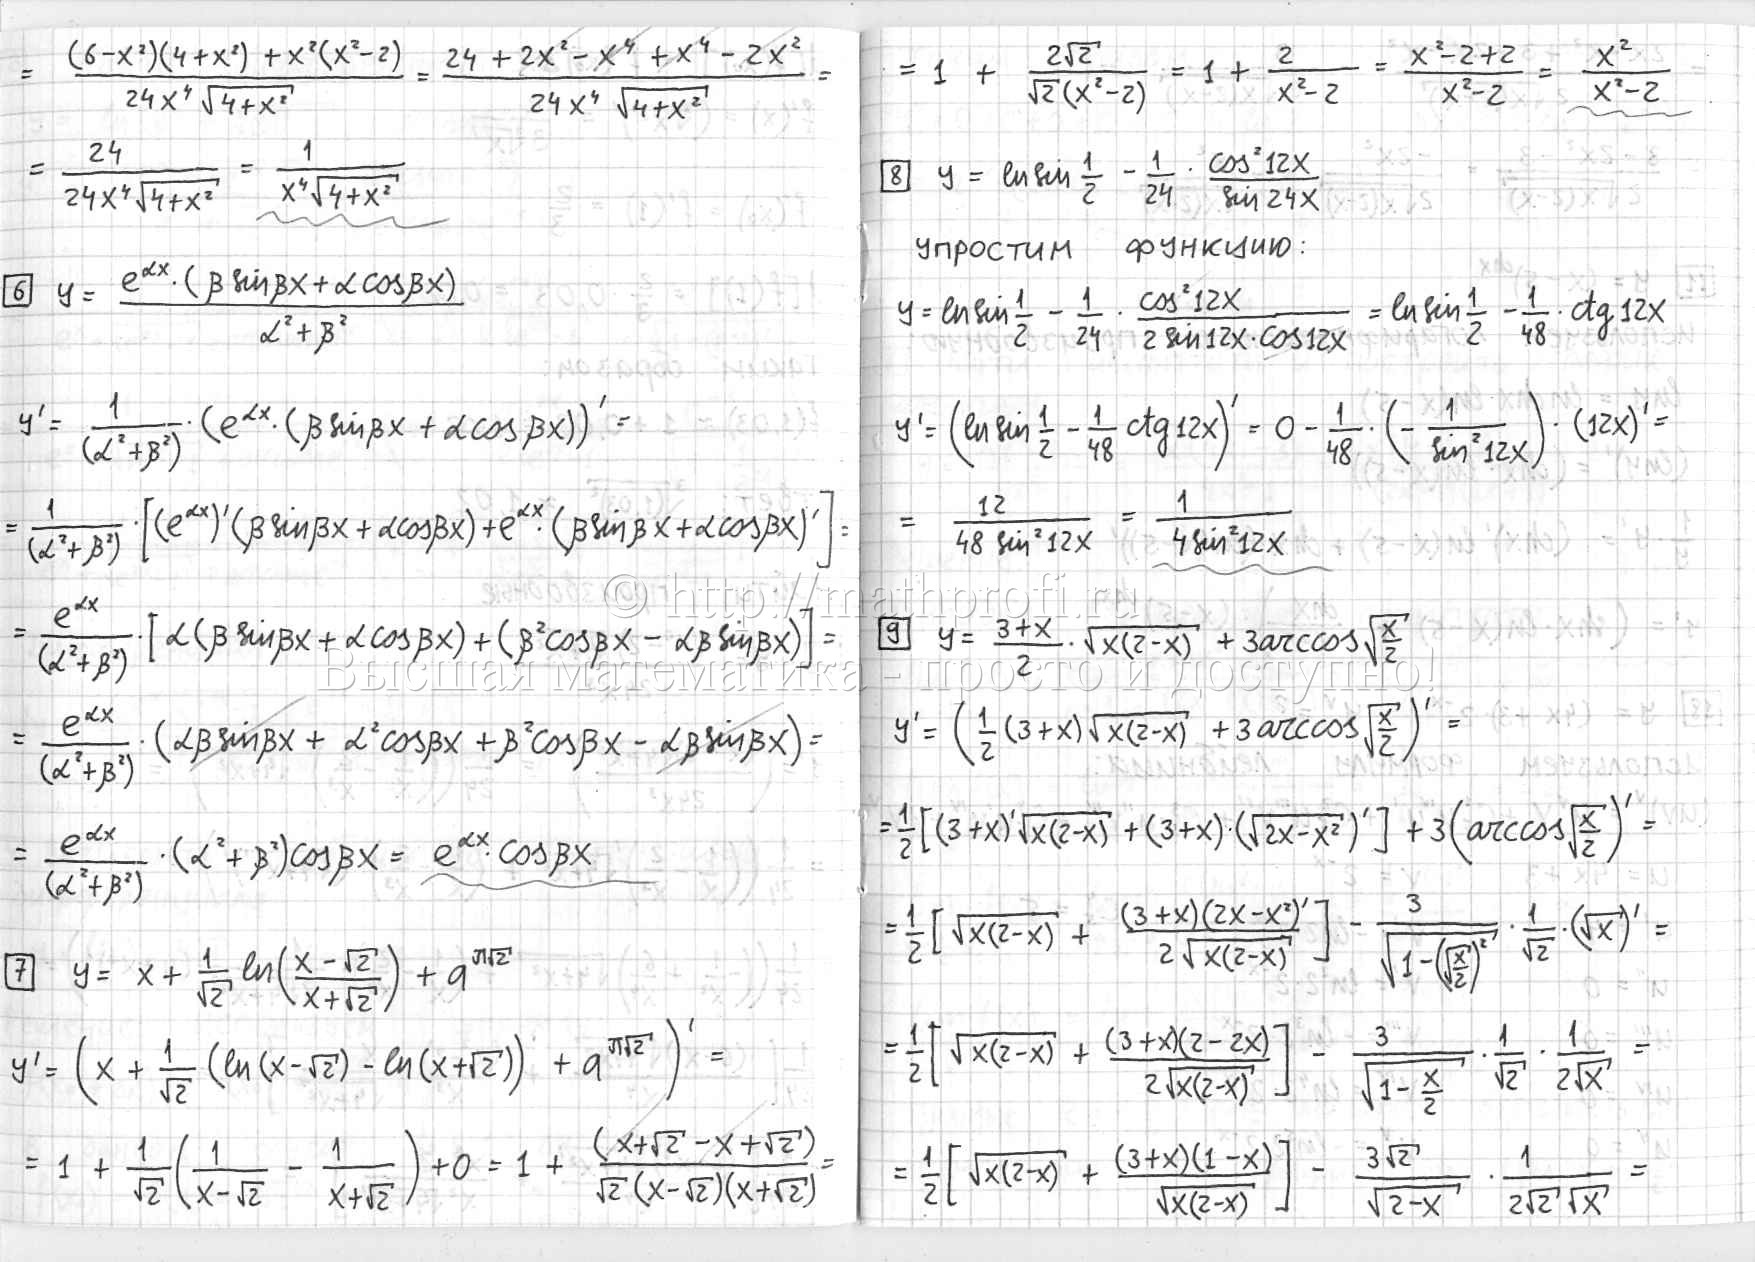 = \frac{(6-x²)(4+x²) + x²(x²-2)}{24x⁴ √(4+x²)} = \frac{24+2x²-x⁴+x⁴-2x²}{24x⁴ √(4+x²)} =
= \frac{24}{24x⁴√(4+x²)} = \frac{1}{x⁴√(4+x²)}
6 y = \frac{e^{αx}·(β sinβx + α cosβx)}{α²+β²}
y' = \frac{1}{(α²+β²)}·(e^{αx}·(β sinβx + α cosβx))' =
= \frac{1}{(α²+β²)}·[(e^{αx})'(β sinβx + α cosβx) + e^{αx}·(β sinβx + α cosβx)'] =
= \frac{e^{αx}}{(α²+β²)}·[α(β sinβx + α cosβx) + (β²cosβx - αβ sinβx)] =
= \frac{e^{αx}}{(α²+β²)}·(αβ sinβx + α²cosβx + β²cosβx - αβ sinβx) =
= \frac{e^{αx}}{(α²+β²)}·(α²+β²)cosβx = e^{αx}·cosβx
7 y = x + \frac{1}{√2} ln(\frac{x-√2}{x+√2}) + a^{π√2}
y' = (x + \frac{1}{√2}(ln(x-√2) - ln(x+√2)) + a^{π√2})' =
= 1 + \frac{1}{√2}(\frac{1}{x-√2} - \frac{1}{x+√2}) + 0 = 1 + \frac{(x+√2-x+√2)}{√2(x-√2)(x+√2)} =
= 1 + \frac{2√2}{√2(x²-2)} = 1 + \frac{2}{x²-2} = \frac{x²-2+2}{x²-2} = \frac{x²}{x²-2}
8 y = ln sin\frac{1}{2} - \frac{1}{24}·\frac{cos²12x}{sin24x}
упростим функцию:
y = ln sin\frac{1}{2} - \frac{1}{24}·\frac{cos²12x}{2sin12x·cos12x} = ln sin\frac{1}{2} - \frac{1}{48}·ctg12x
y' = (ln sin\frac{1}{2} - \frac{1}{48} ctg12x)' = 0 - \frac{1}{48}·(-\frac{1}{sin²12x})·(12x)' =
= \frac{12}{48 sin²12x} = \frac{1}{4sin²12x}
9 y = \frac{3+x}{2}·√(x(2-x)) + 3arccos√\frac{x}{2}
y' = (\frac{1}{2}(3+x)√(x(2-x)) + 3arccos√\frac{x}{2})' =
= \frac{1}{2}[(3+x)'√(x(2-x)) + (3+x)·(√(2x-x²))'] + 3(arccos√\frac{x}{2})' =
= \frac{1}{2}[√(x(2-x)) + \frac{(3+x)(2x-x²)'}{2√(x(2-x))}] - \frac{3}{√(1-(√\frac{x}{2})²)}·\frac{1}{√2}·(√x)' =
= \frac{1}{2}[√(x(2-x)) + \frac{(3+x)(2-2x)}{2√(x(2-x))}] - \frac{3}{√(1-\frac{x}{2})}·\frac{1}{√2}·\frac{1}{2√x} =
= \frac{1}{2}[√(x(2-x)) + \frac{(3+x)(1-x)}{√(x(2-x))}] - \frac{3√2}{√(2-x)}·\frac{1}{2√2√x} =
© http://mathprofi.ru
Высшая математика - просто и доступно!